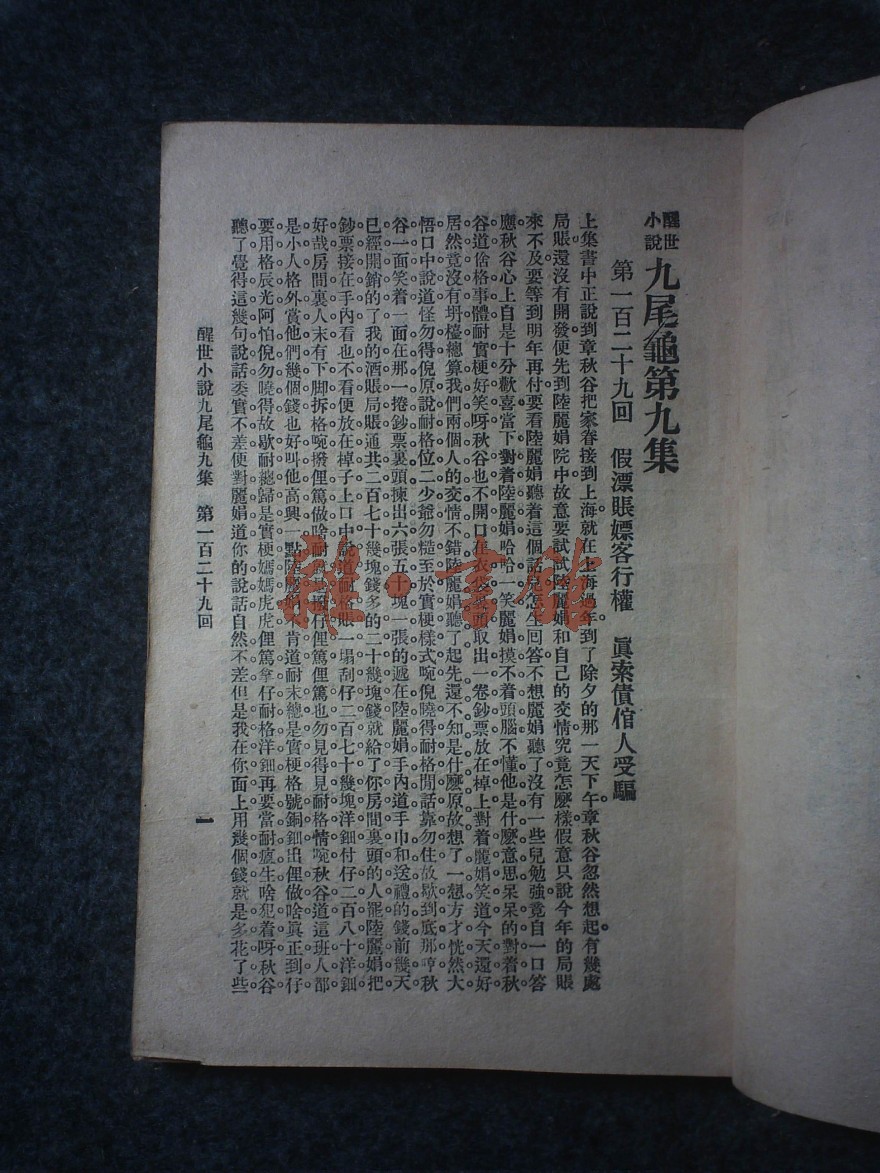 醒世小說 九尾龜第九集
第一百二十九回 假漂賬嫖客行權 眞索債倌人受騙
上集書中正說到章秋谷把家眷接到上海就在上海過年到了除夕的那一天下午章秋谷忽然想起有幾處
局賬還沒有開發便先到陸麗娟院中故意要試試陸麗娟和自己的交情究竟怎麼樣假意只說今年的局賬
來不及要等到明年再付要看陸麗娟聽着這個話兒怎生回答不想麗娟聽了沒有一些兒勉強竟自一口答
應秋谷心上自是十分歡喜當下對着陸麗娟哈哈一笑麗娟摸不着頭腦不懂他是什麼意思呆呆的對着秋
谷道倽格事體耐實梗好笑呀秋谷也不開口在衣袋裏頭取出一卷鈔票放在棹上對着麗娟笑道今天還好
居然竟沒有坍檯總算我們兩個人的交情不錯陸麗娟聽了起先還不知是什麼原故想了一想方才恍然大
悟口中說道怪勿得倪原說耐格位二少爺勿糙至於實梗樣式啘倪曉得耐格閒話靠勿住故歇到底那哼秋
谷一面笑着一面在那一捲鈔票裏頭揀出六張五十塊一張的遞在陸麗娟手內道手巾和送禮的錢前幾天
已經開銷的了我的酒賬局賬通共二百七十幾塊錢多的二十幾塊錢就給了你房間裏頭的人罷陸麗娟把
鈔票接在手內看也不看便放在棹子上口中說道耐格賬一塌刮仔二百七十幾塊洋鈿付仔二百八十洋鈿
好哉房間裏人末有下脚拆格啘撥俚篤做啥耐撥仔俚篤俚篤也勿見得見耐格情啘秋谷道這班人都
是小人格外賞他們幾個錢也好叫他高興一點陸麗娟不肯道耐末總是實梗格號銅鈿出俚做啥眞正到仔
要用格辰光阿怕倪勿曉得故歇耐總歸是實梗媽媽虎虎俚篤拿仔耐格洋鈿再要當耐瘟生啥犯着呀秋谷
聽了覺得這幾句說話委實不差便對麗娟道你的說話自然不差但是我在你面上用幾個錢就是多花了些
醒世小說九尾龜九集 第一百二十九回 一
雜·書館